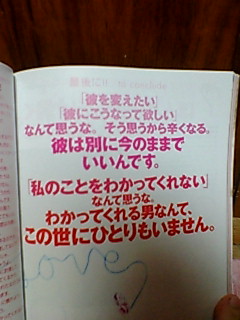 最後に!!
「彼を変えたい」
「彼にこうなって欲しい」
なんて思うな。そう思うから辛くなる。
彼は別に今のままで
いいんです。
「私のことをわかってくれない」
なんて思うな。
わかってくれる男なんて、
この世にひとりもいません。
Love